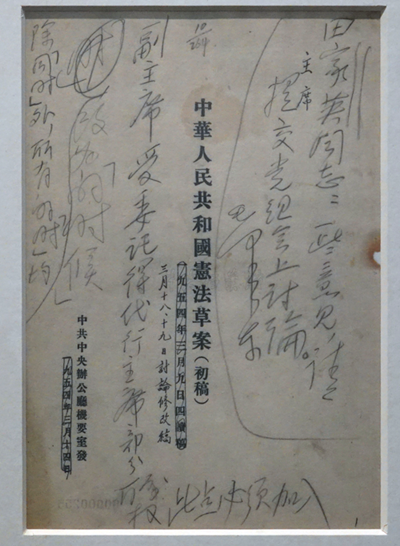 田家英同志：一些意见，请
主席
提交党组会上讨论。
毛泽东
中華人民共和國憲法草案(初稿)
(一九五四年三月九日四讀稿)
三月十八·十九日討論修改稿
副主席受委託得代行主席部分職权
此点必须加入
中共中央辦公廳機要室發
一九五四年三月十四日
改为「的时候」
除「同时」外，所有「的时」均